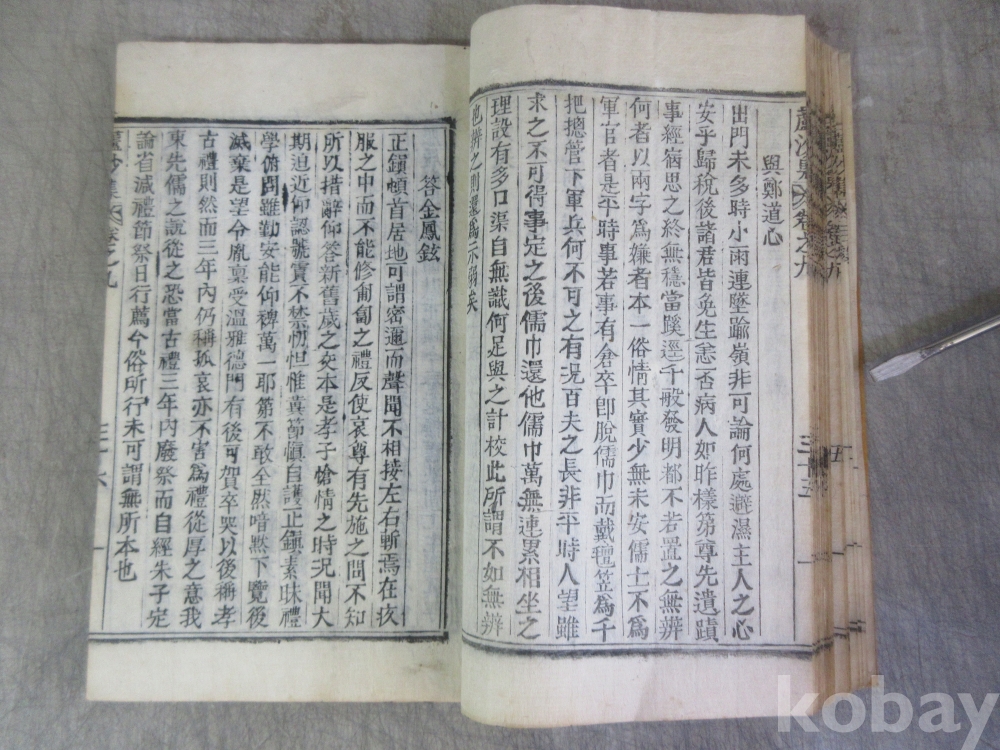 蘆沙集卷之九
三十五
與鄭道心
出門未多時小雨連墜踰嶺非可論何處避濕主人之心
安乎歸稅後諸君皆免生恙否病人如昨樣第尊先遺蹟
事經宿思之終無穩當蹊逕千般發明都不若置之無辨
何者以兩字爲嫌者本一俗情其實少無未安儒士不爲
軍官者是平時事若事有倉卒卽脫儒巾而戴氊笠爲千
把摠管下軍兵何不可之有況百夫之長非平時人望雖
求之不可得事定之後儒巾還他儒巾萬無連累相坐之
理設有多口渠自無識何足與之計校此所謂不如無辨
也辨之則還爲示弱矣
答金鳳鉉
正鎭頓首居地可謂密邇而聲聞不相接左右斬焉在疚
服之中而不能修匍匐之禮反使哀尊有先施之問不知
所以措辭仰答新舊歲之交本是孝子愴情之時況聞大
期迫近仰認號賁不禁忉怛惟冀節愼自護正鎭素昧禮
學俯問雖勤安能仰裨萬一耶第不敢全然喑默下覽後
滅棄是望令胤稟受溫雅德門有後可賀卒哭以後稱孝
古禮則然而三年內仍稱孤哀亦不害爲禮從厚之意我
東先儒之說從之恐當古禮三年內廢祭而自經朱子定
論省減禮節祭日行薦今俗所行未可謂無所本也
蘆沙集卷之九
三十六
kobay